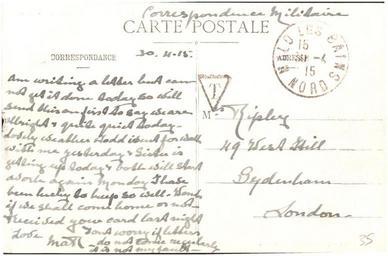 Correspondence Militaire
CARTE POSTALE
CORRESPONDANCE
30.4.15.
Am writing a letter but can
not get it done today so will
send this on first to say we are
allright & quite quiet today
lovely weather. went for walk
with me yesterday & Sister is
getting up today & both will start
work again Monday. I have
been lucky to keep so well.
if we shall come home or not
received your card last night
Love Don't worry if letters
do not come regularly
it is not my fault
MALO LES BAINS
15
4
15
NORD
T
M
Ripley
49 West Hill
Sydenham
London.
35